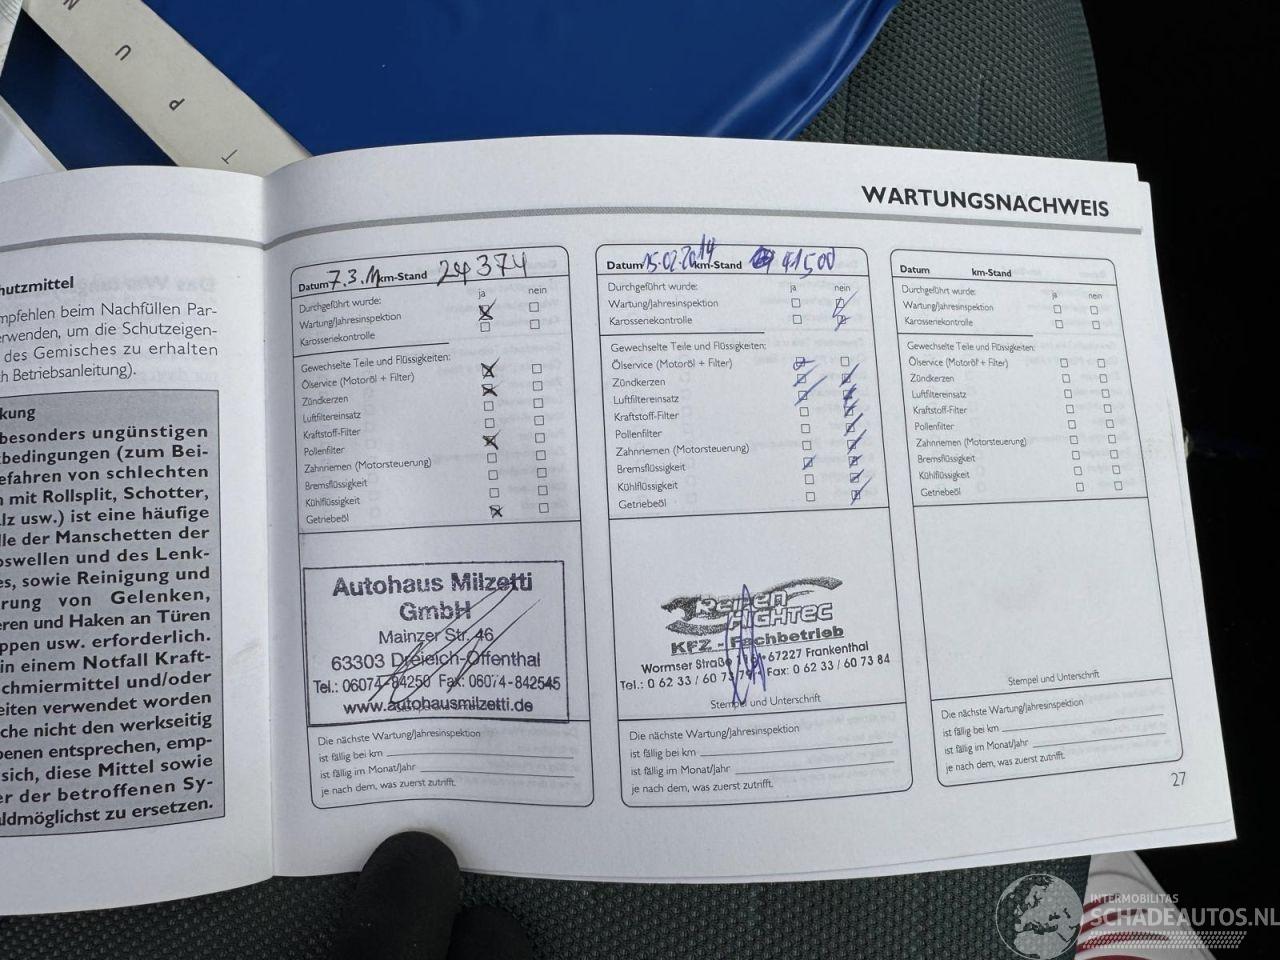 N
U
P
T
WARTUNGSNACHWEIS
hutzmittel
mpfehlen beim Nachfüllen Par-
erwenden, um die Schutzeigen-
des Gemisches zu erhalten
h Betriebsanleitung).
kung
besonders ungünstigen
tbedingungen (zum Bei-
efahren von schlechten
n mit Rollsplit, Schotter,
alz usw.) ist eine häufige
lle der Manschetten der
oswellen und des Lenk-
es, sowie Reinigung und
rung von Gelenken,
eren und Haken an Türen
ppen usw. erforderlich.
in einem Notfall Kraft-
chmiermittel und/oder
eiten verwendet worden
che nicht den werkseitig
benen entsprechen, emp-
sich, diese Mittel sowie
er der betroffenen Sy-
aldmöglichst zu ersetzen.
Datum 7.3.11 km-Stand 24 374
Durchgeführt wurde: ja nein
Wartung/Jahresinspektion
Karosseriekontrolle
Gewechselte Teile und Flüssigkeiten:
Ölservice (Motoröl + Filter)
Zündkerzen
Luftfiltereinsatz
Kraftstoff-Filter
Pollenfilter
Zahnriemen (Motorsteuerung)
Bremsflüssigkeit
Kühlflüssigkeit
Getriebeöl
Autohaus Milzetti
GmbH
Mainzer Str. 46
63303 Dreieich-Offenthal
Tel.: 06074-84250 Fax: 06074-842545
www.autohausmilzetti.de
Die nächste Wartung/Jahresinspektion
ist fällig bei km
ist fällig im Monat/Jahr
je nach dem, was zuerst zutrifft.
Datum 15.02.2014 km-Stand 41500
Durchgeführt wurde: ja nein
Wartung/Jahresinspektion
Karosseriekontrolle
Gewechselte Teile und Flüssigkeiten:
Ölservice (Motoröl + Filter)
Zündkerzen
Luftfiltereinsatz
Kraftstoff-Filter
Pollenfilter
Zahnriemen (Motorsteuerung)
Bremsflüssigkeit
Kühlflüssigkeit
Getriebeöl
REIFEN
HIGHTEC
KFZ - Fachbetrieb
Wormser Straße 67227 Frankenthal
Tel.: 0 62 33 / 60 73 Fax: 0 62 33 / 60 73 84
Stempel und Unterschrift
Die nächste Wartung/Jahresinspektion
ist fällig bei km
ist fällig im Monat/Jahr
je nach dem, was zuerst zutrifft.
Datum km-Stand
Durchgeführt wurde: ja nein
Wartung/Jahresinspektion
Karosseriekontrolle
Gewechselte Teile und Flüssigkeiten:
Ölservice (Motoröl + Filter)
Zündkerzen
Luftfiltereinsatz
Kraftstoff-Filter
Pollenfilter
Zahnriemen (Motorsteuerung)
Bremsflüssigkeit
Kühlflüssigkeit
Getriebeöl
Stempel und Unterschrift
Die nächste Wartung/Jahresinspektion
ist fällig bei km
ist fällig im Monat/Jahr
je nach dem, was zuerst zutrifft.
27
INTERMOBILITAS
SCHADEAUTOS.NL